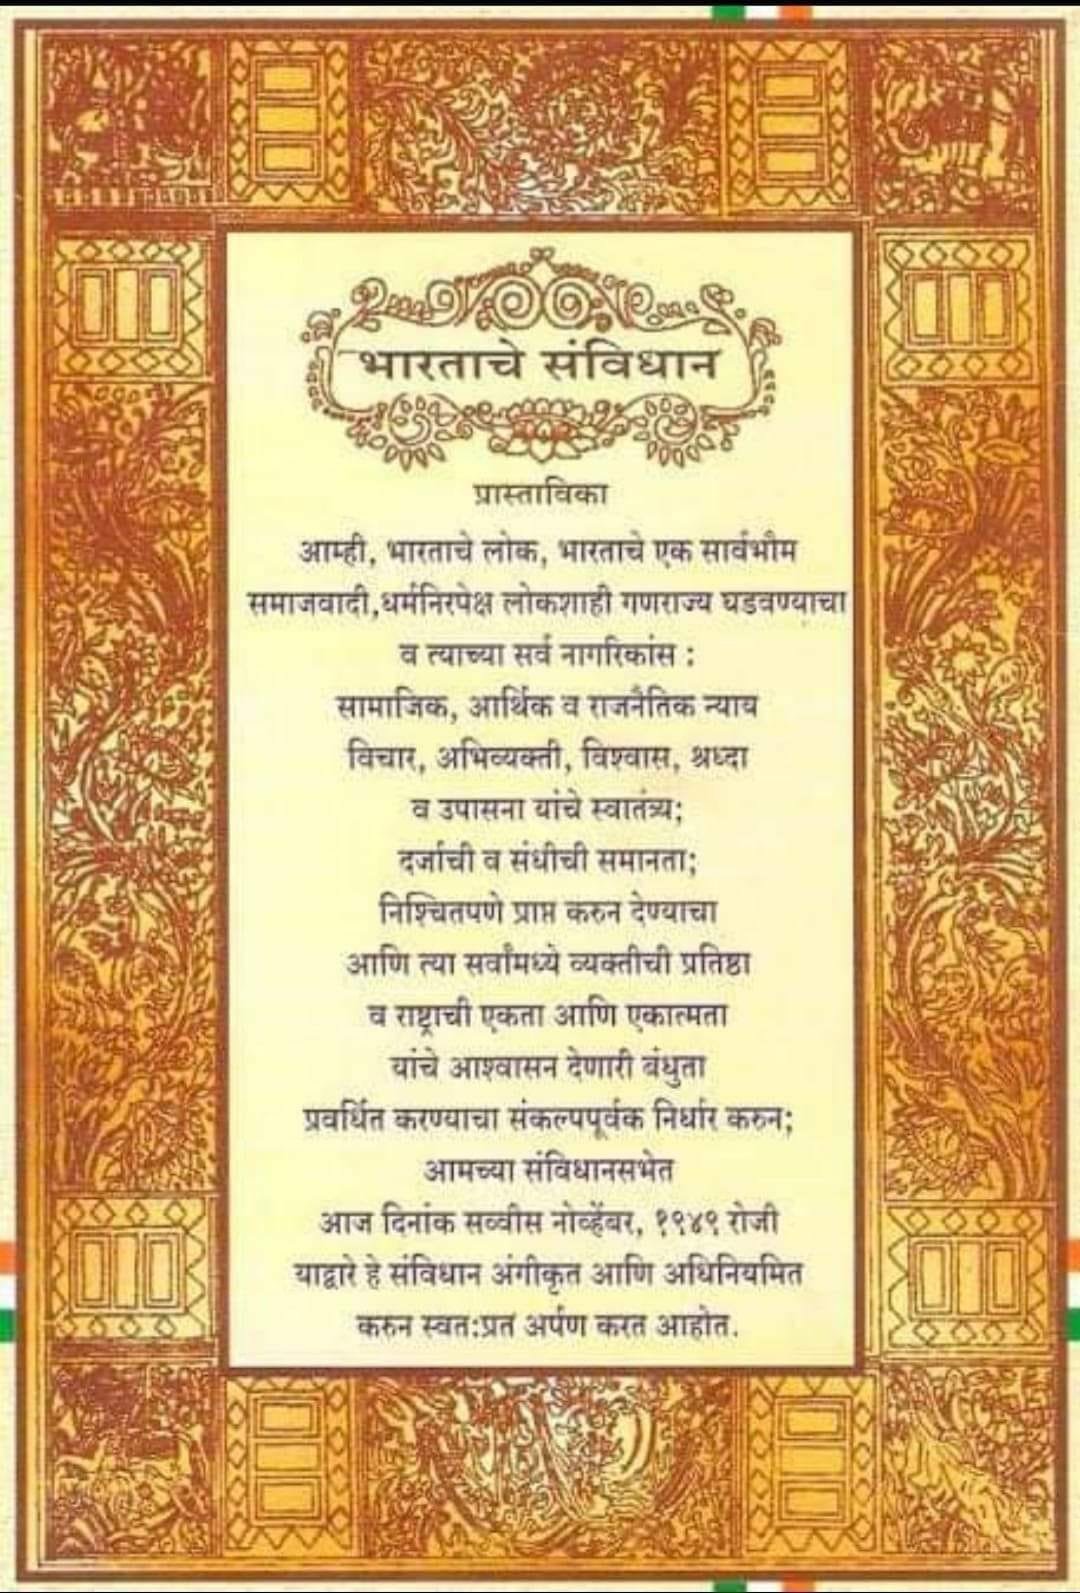 भारताचे संविधान
प्रास्ताविका
आम्ही, भारताचे लोक, भारताचे एक सार्वभौम
समाजवादी,धर्मनिरपेक्ष लोकशाही गणराज्य घडवण्याचा
व त्याच्या सर्व नागरिकांस :
सामाजिक, आर्थिक व राजनैतिक न्याय
विचार, अभिव्यक्ती, विश्वास, श्रध्दा
व उपासना यांचे स्वातंत्र्य;
दर्जाची व संधीची समानता;
निश्चितपणे प्राप्त करुन देण्याचा
आणि त्या सर्वांमध्ये व्यक्तीची प्रतिष्ठा
व राष्ट्राची एकता आणि एकात्मता
यांचे आश्वासन देणारी बंधुता
प्रवर्धित करण्याचा संकल्पपूर्वक निर्धार करुन;
आमच्या संविधानसभेत
आज दिनांक सव्वीस नोव्हेंबर, १९४९ रोजी
याद्वारे हे संविधान अंगीकृत आणि अधिनियमित
करुन स्वत:प्रत अर्पण करत आहोत.